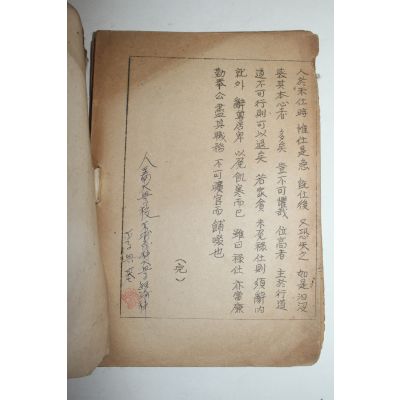 人於未仕時 惟仕是急 旣仕後 又恐失之 如是汨沒
喪其本心者 多矣 豈不可懼哉 位高者 主於行道
道不可行則可以退矣 若家貧 未免祿仕則 須辭內
就外 辭尊居卑 以免飢寒而已 雖曰祿仕 亦當廉
勤奉公 盡其職務 不可曠官而餔啜也
(完)
大學校